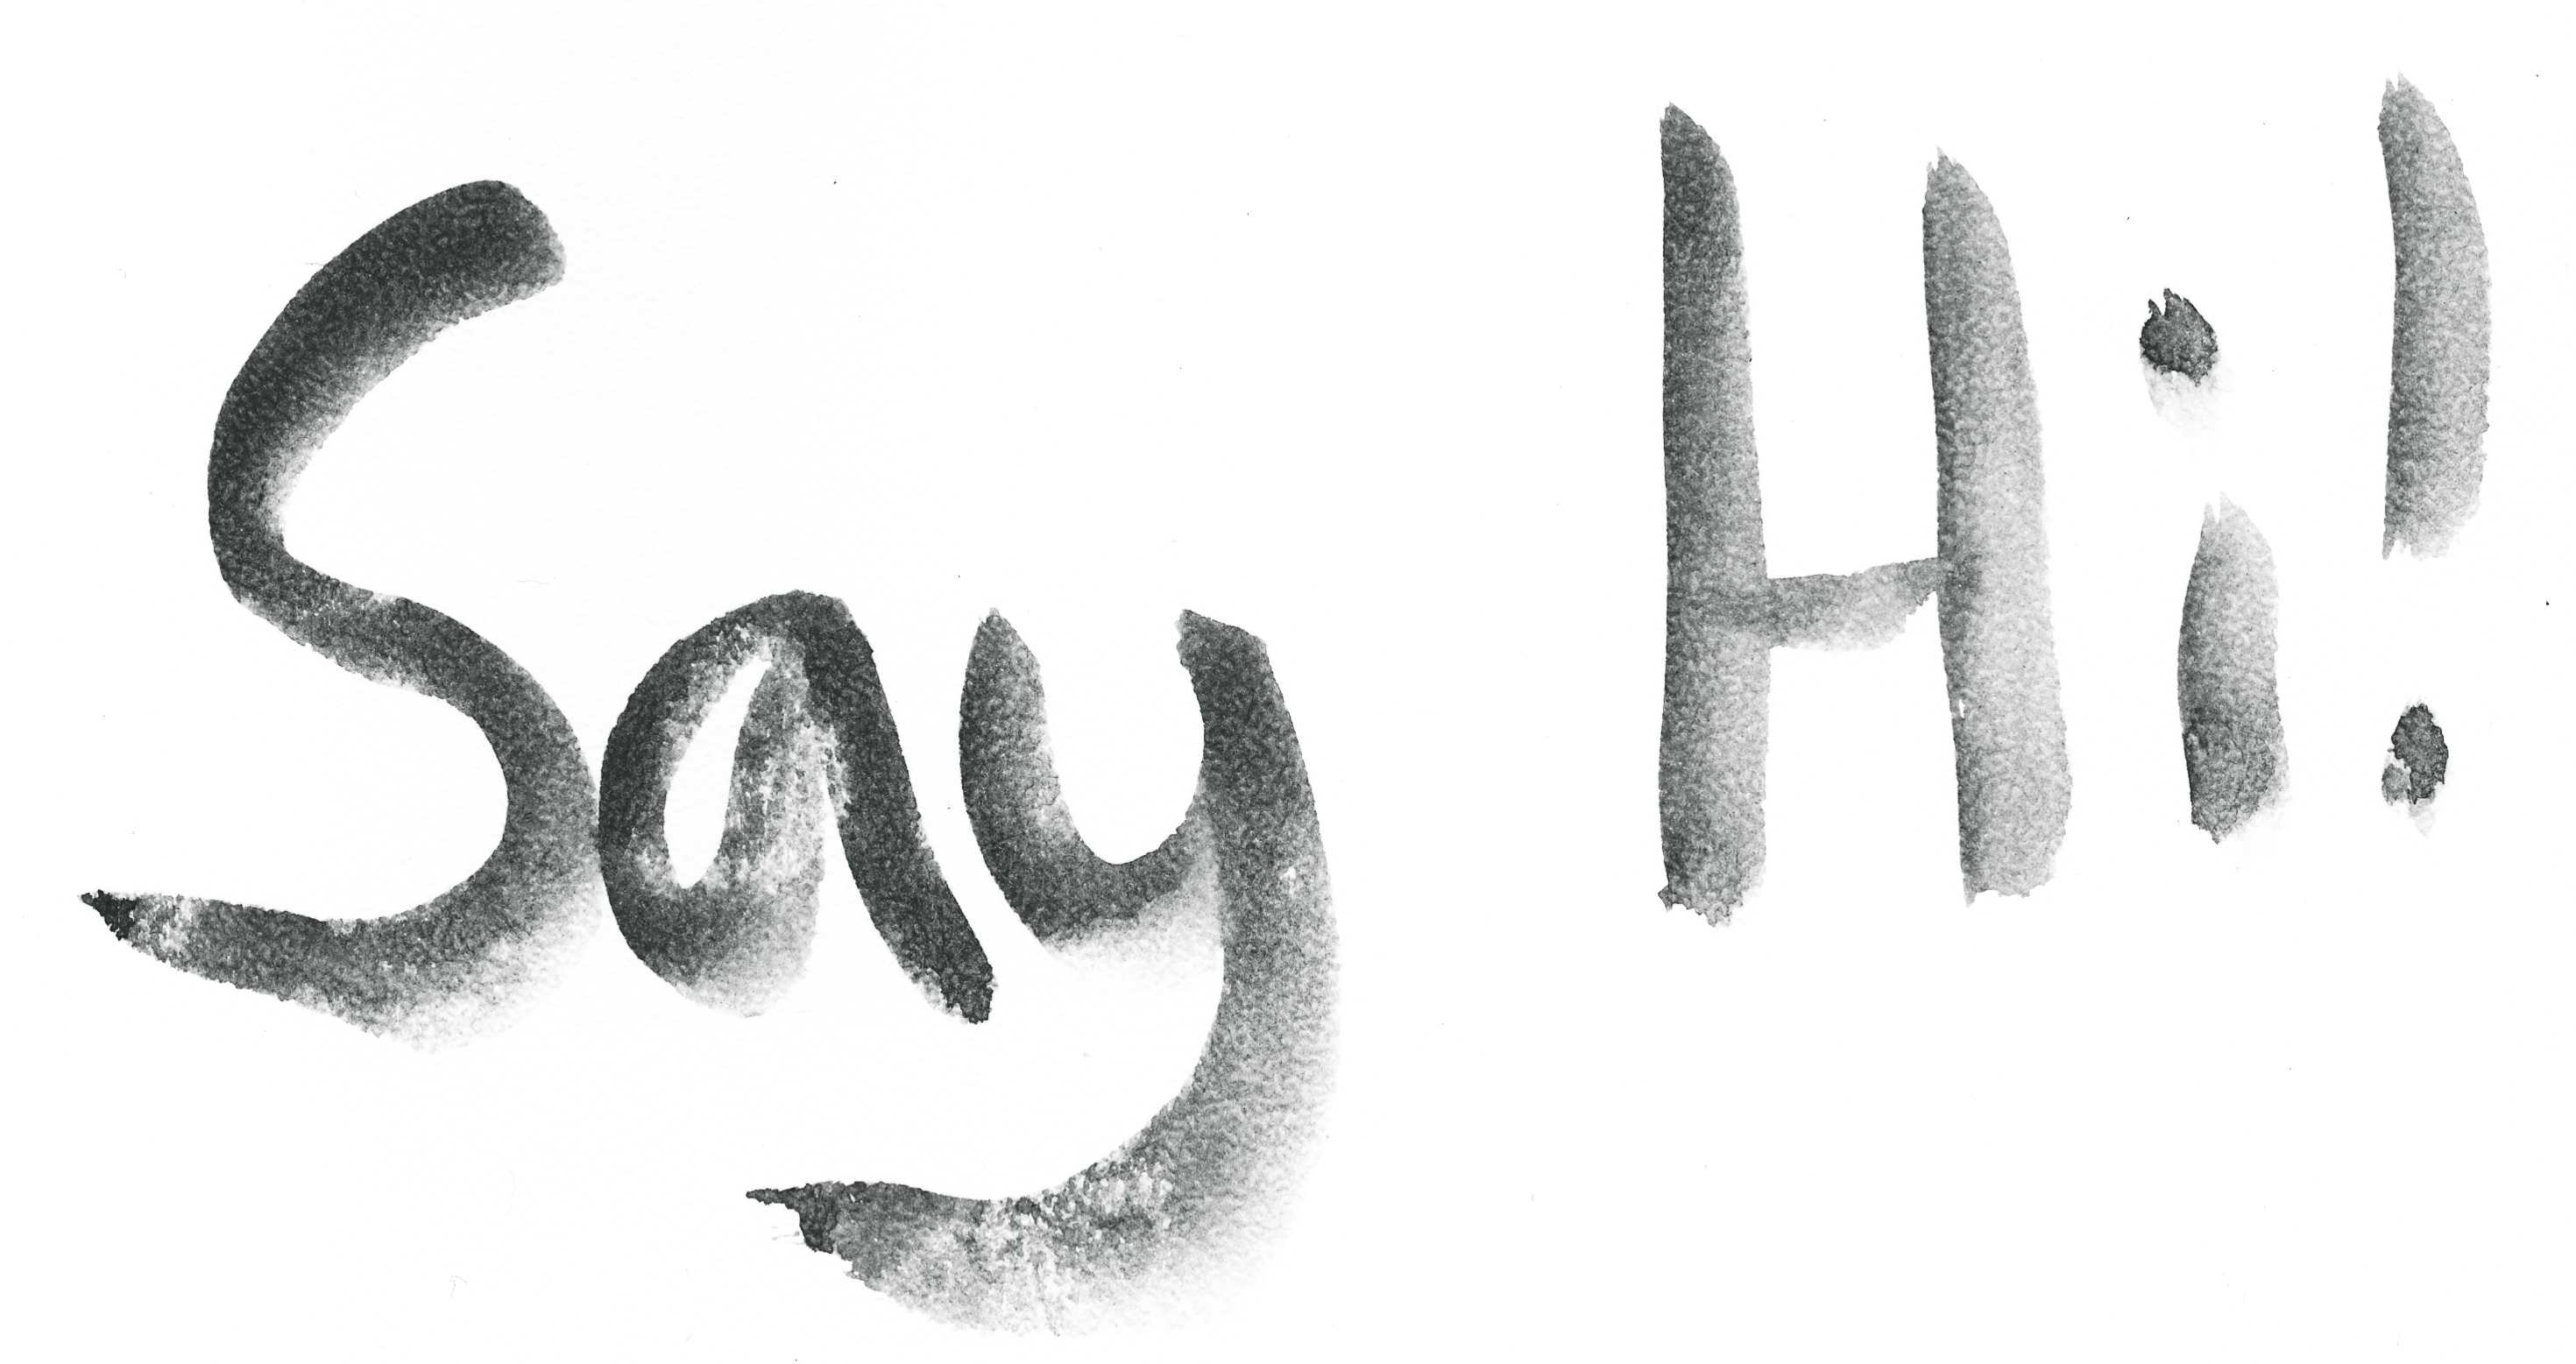 Say Hi!